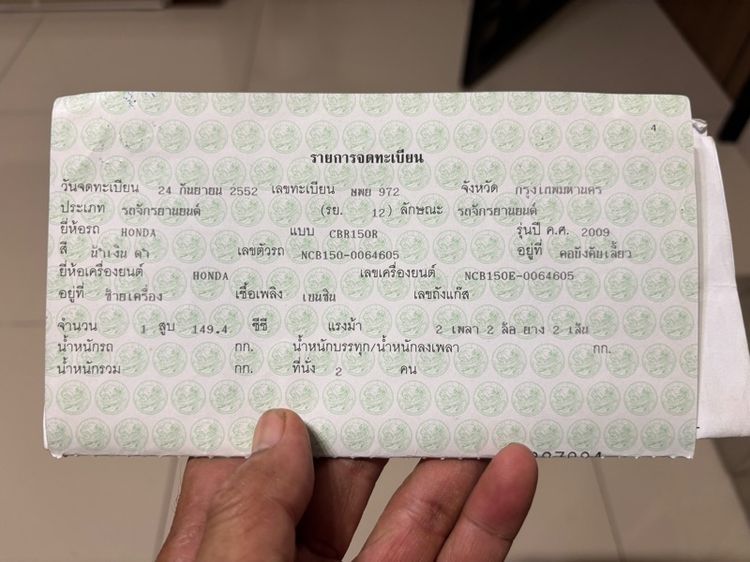 4
รายการจดทะเบียน
วันจดทะเบียน 24 กันยายน 2552 เลขทะเบียน 972 จังหวัด กรุงเทพมหานคร
ประเภท รถจักรยานยนต์ (รย. 12) ลักษณะ รถจักรยานยนต์
ยี่ห้อรถ HONDA แบบ CBR150R รุ่นปี ค.ศ. 2009
สี น้ำเงิน ดำ เลขตัวรถ NCB150-0064605 อยู่ที่ คอบังคับเลี้ยว
ยี่ห้อเครื่องยนต์ HONDA เลขเครื่องยนต์ NCB150E-0064605
อยู่ที่ ซ้ายเครื่อง เชื้อเพลิง เบนซิน เลขถังแก๊ส
จำนวน 1 สูบ 149.4 ซีซี แรงม้า 2 เพลา 2 ล้อ ยาง 2 เส้น
น้ำหนักรถ กก. น้ำหนักบรรทุก/น้ำหนักลงเพลา กก.
น้ำหนักรวม กก. ที่นั่ง 2 คน